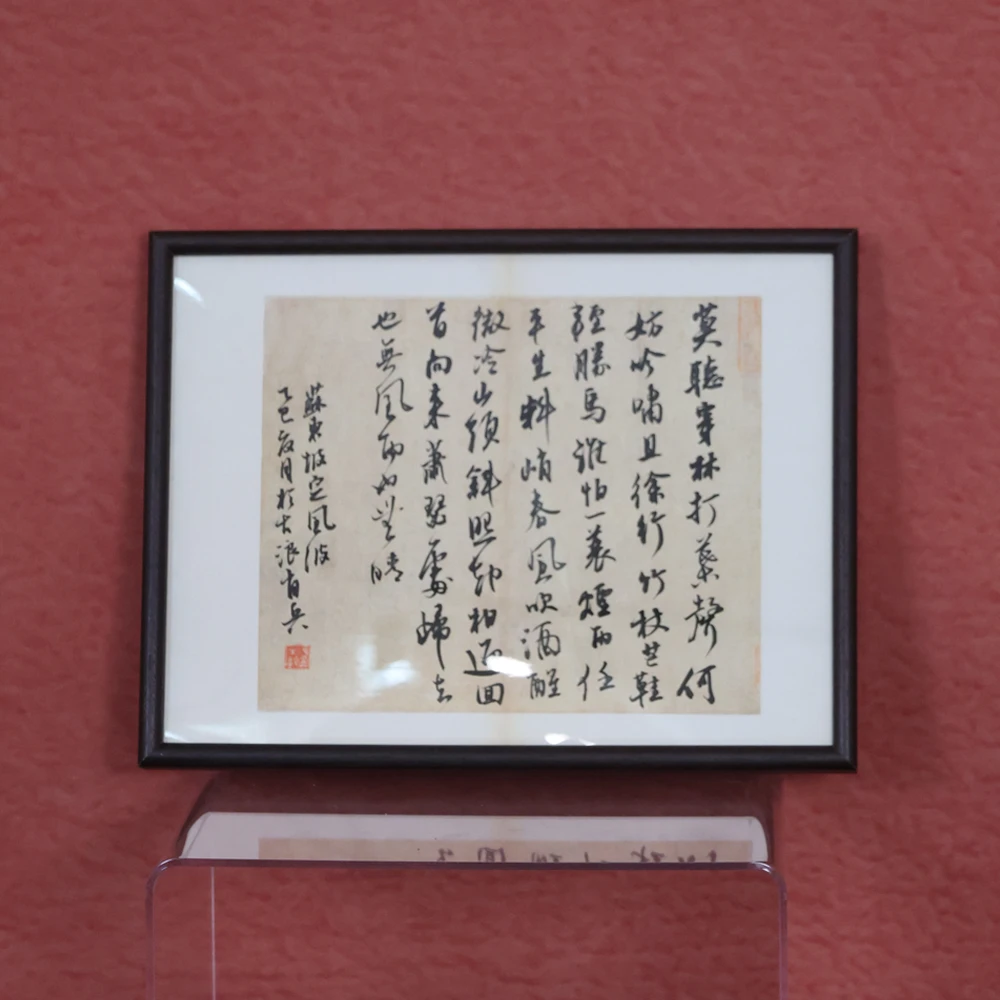 莫聽穿林打葉聲何
妨吟嘯且徐行竹杖芒鞋
輕勝馬誰怕一蓑煙雨任
平生料峭春風吹酒醒
微冷山頭斜照却相迎回
首向來蕭瑟處歸去
也無風雨也無晴
蘇東坡定風波
乙巳夏月於大浪肖兵